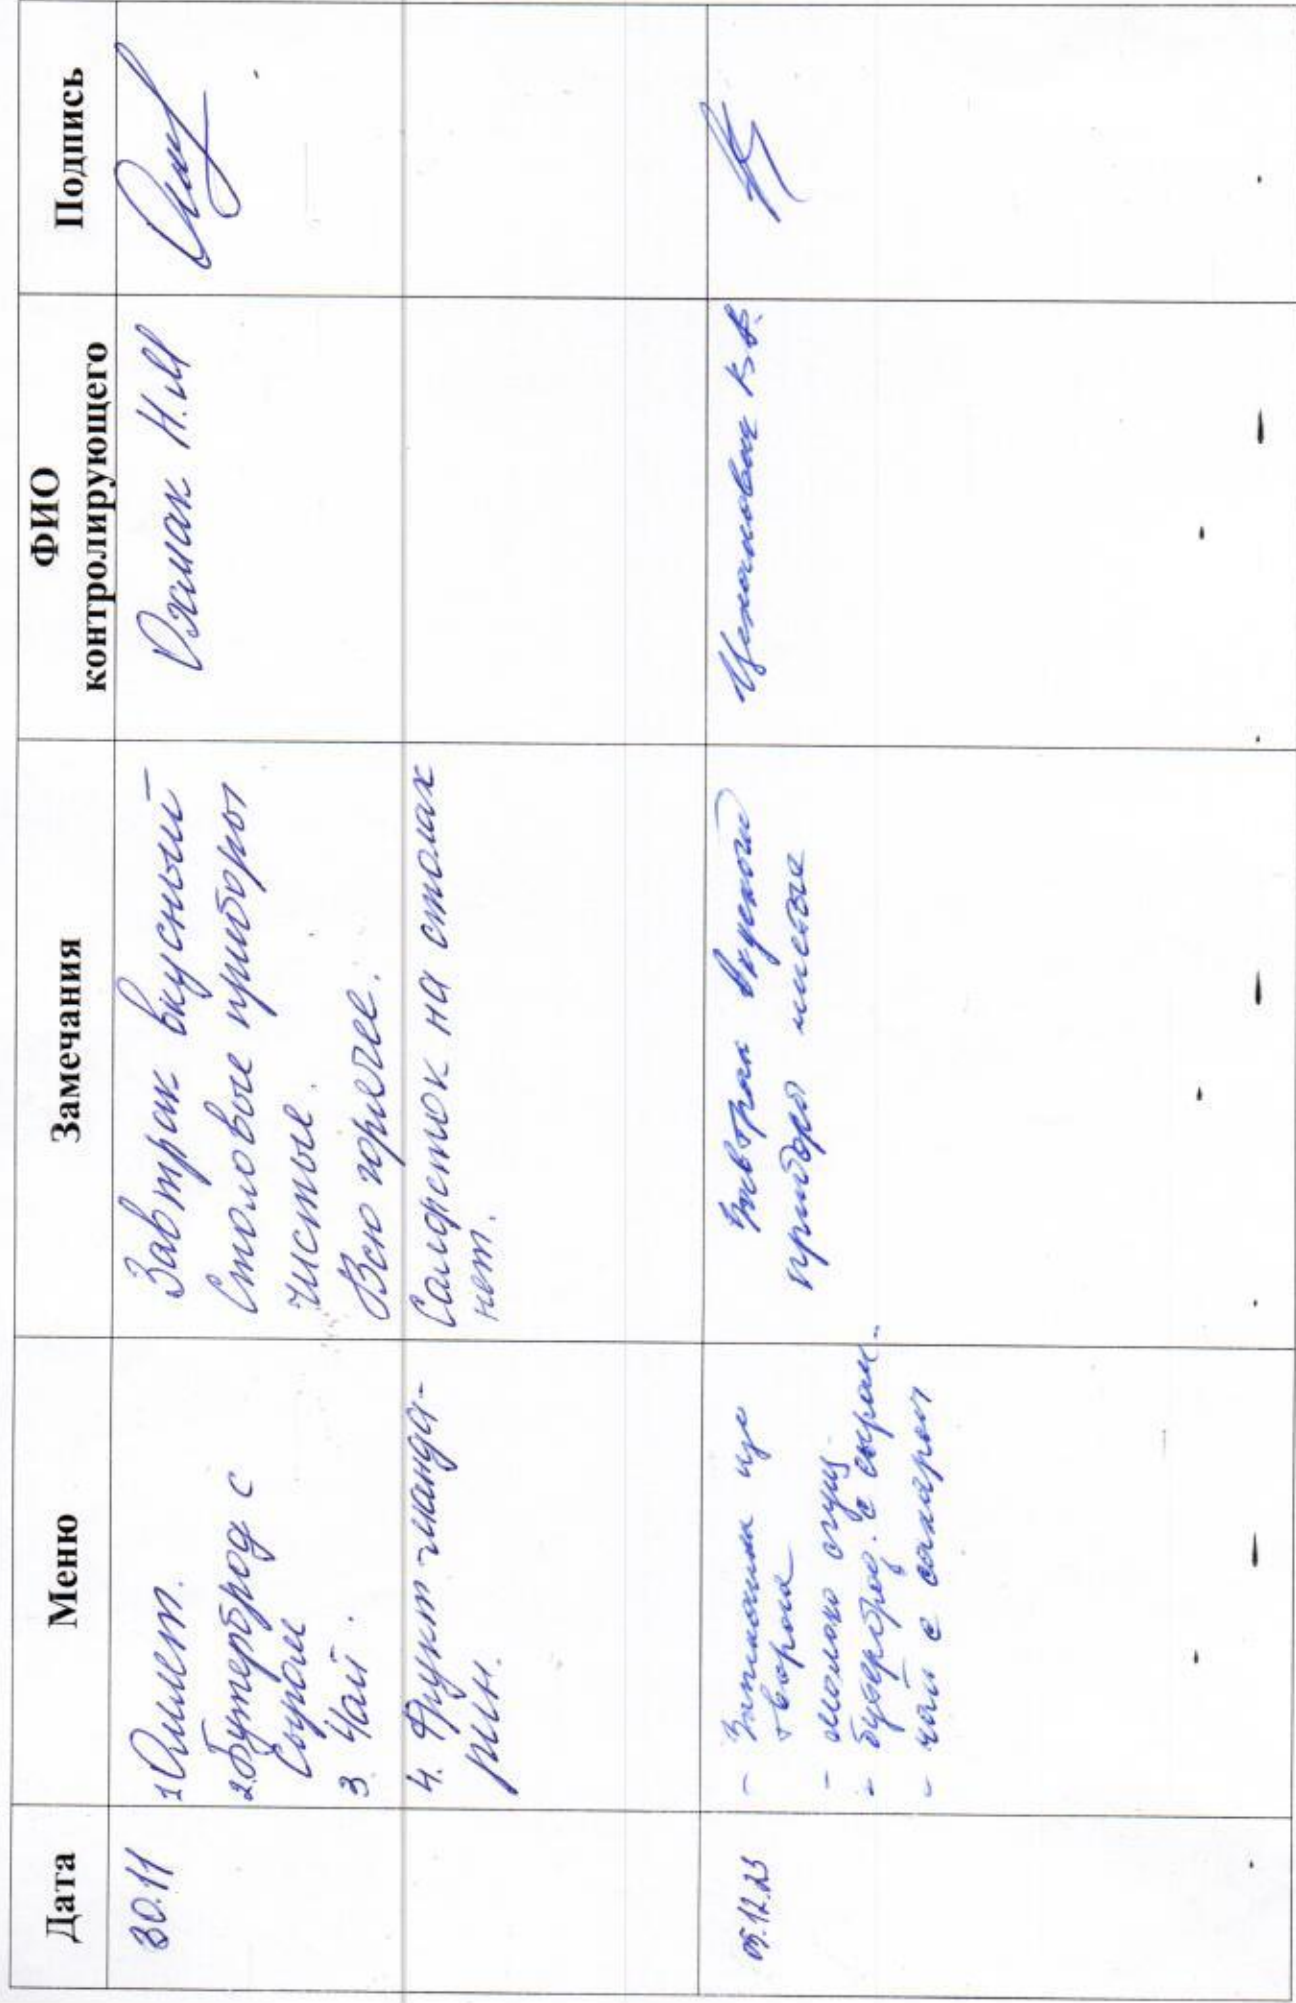 Дата Меню Замечания ФИО контролирующего Подпись
30.11
1 Омлет.
2. Бутерброд с
сыром
3. Чай.
4. Фрукт-манда-
рин.
Завтрак вкусный
Столовые приборы
чистые.
Всю горячее.
Салфеток на столах
нет.
Н.М
05.12.23
- Запеканка из
творога
- молоко сгущ.
- бутерброд. с сыром
- чай с сахаром
Завтрак вкусный
приборы чистые